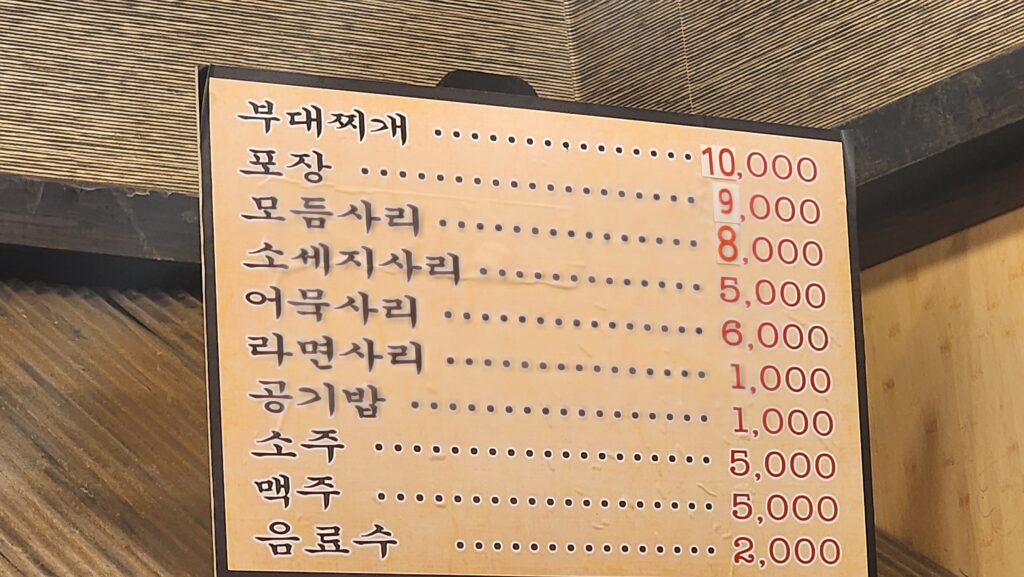 부대찌개 10,000
포장 9,000
모듬사리 8,000
소세지사리 5,000
어묵사리 6,000
라면사리 1,000
공기밥 1,000
소주 5,000
맥주 5,000
음료수 2,000